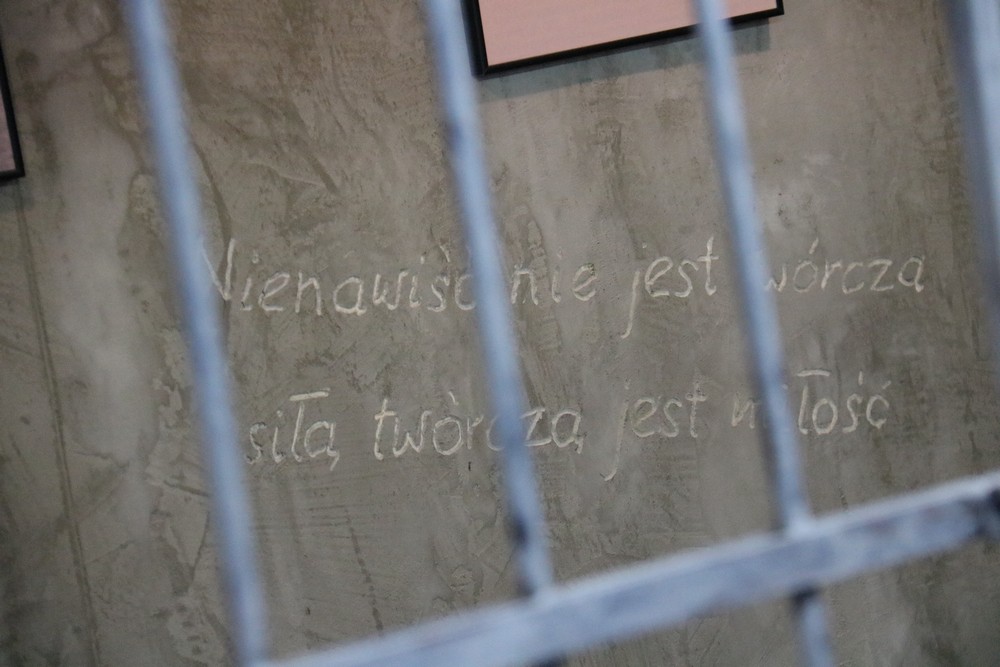 Nienawiść nie jest twórcza
siłą twórczą jest miłość